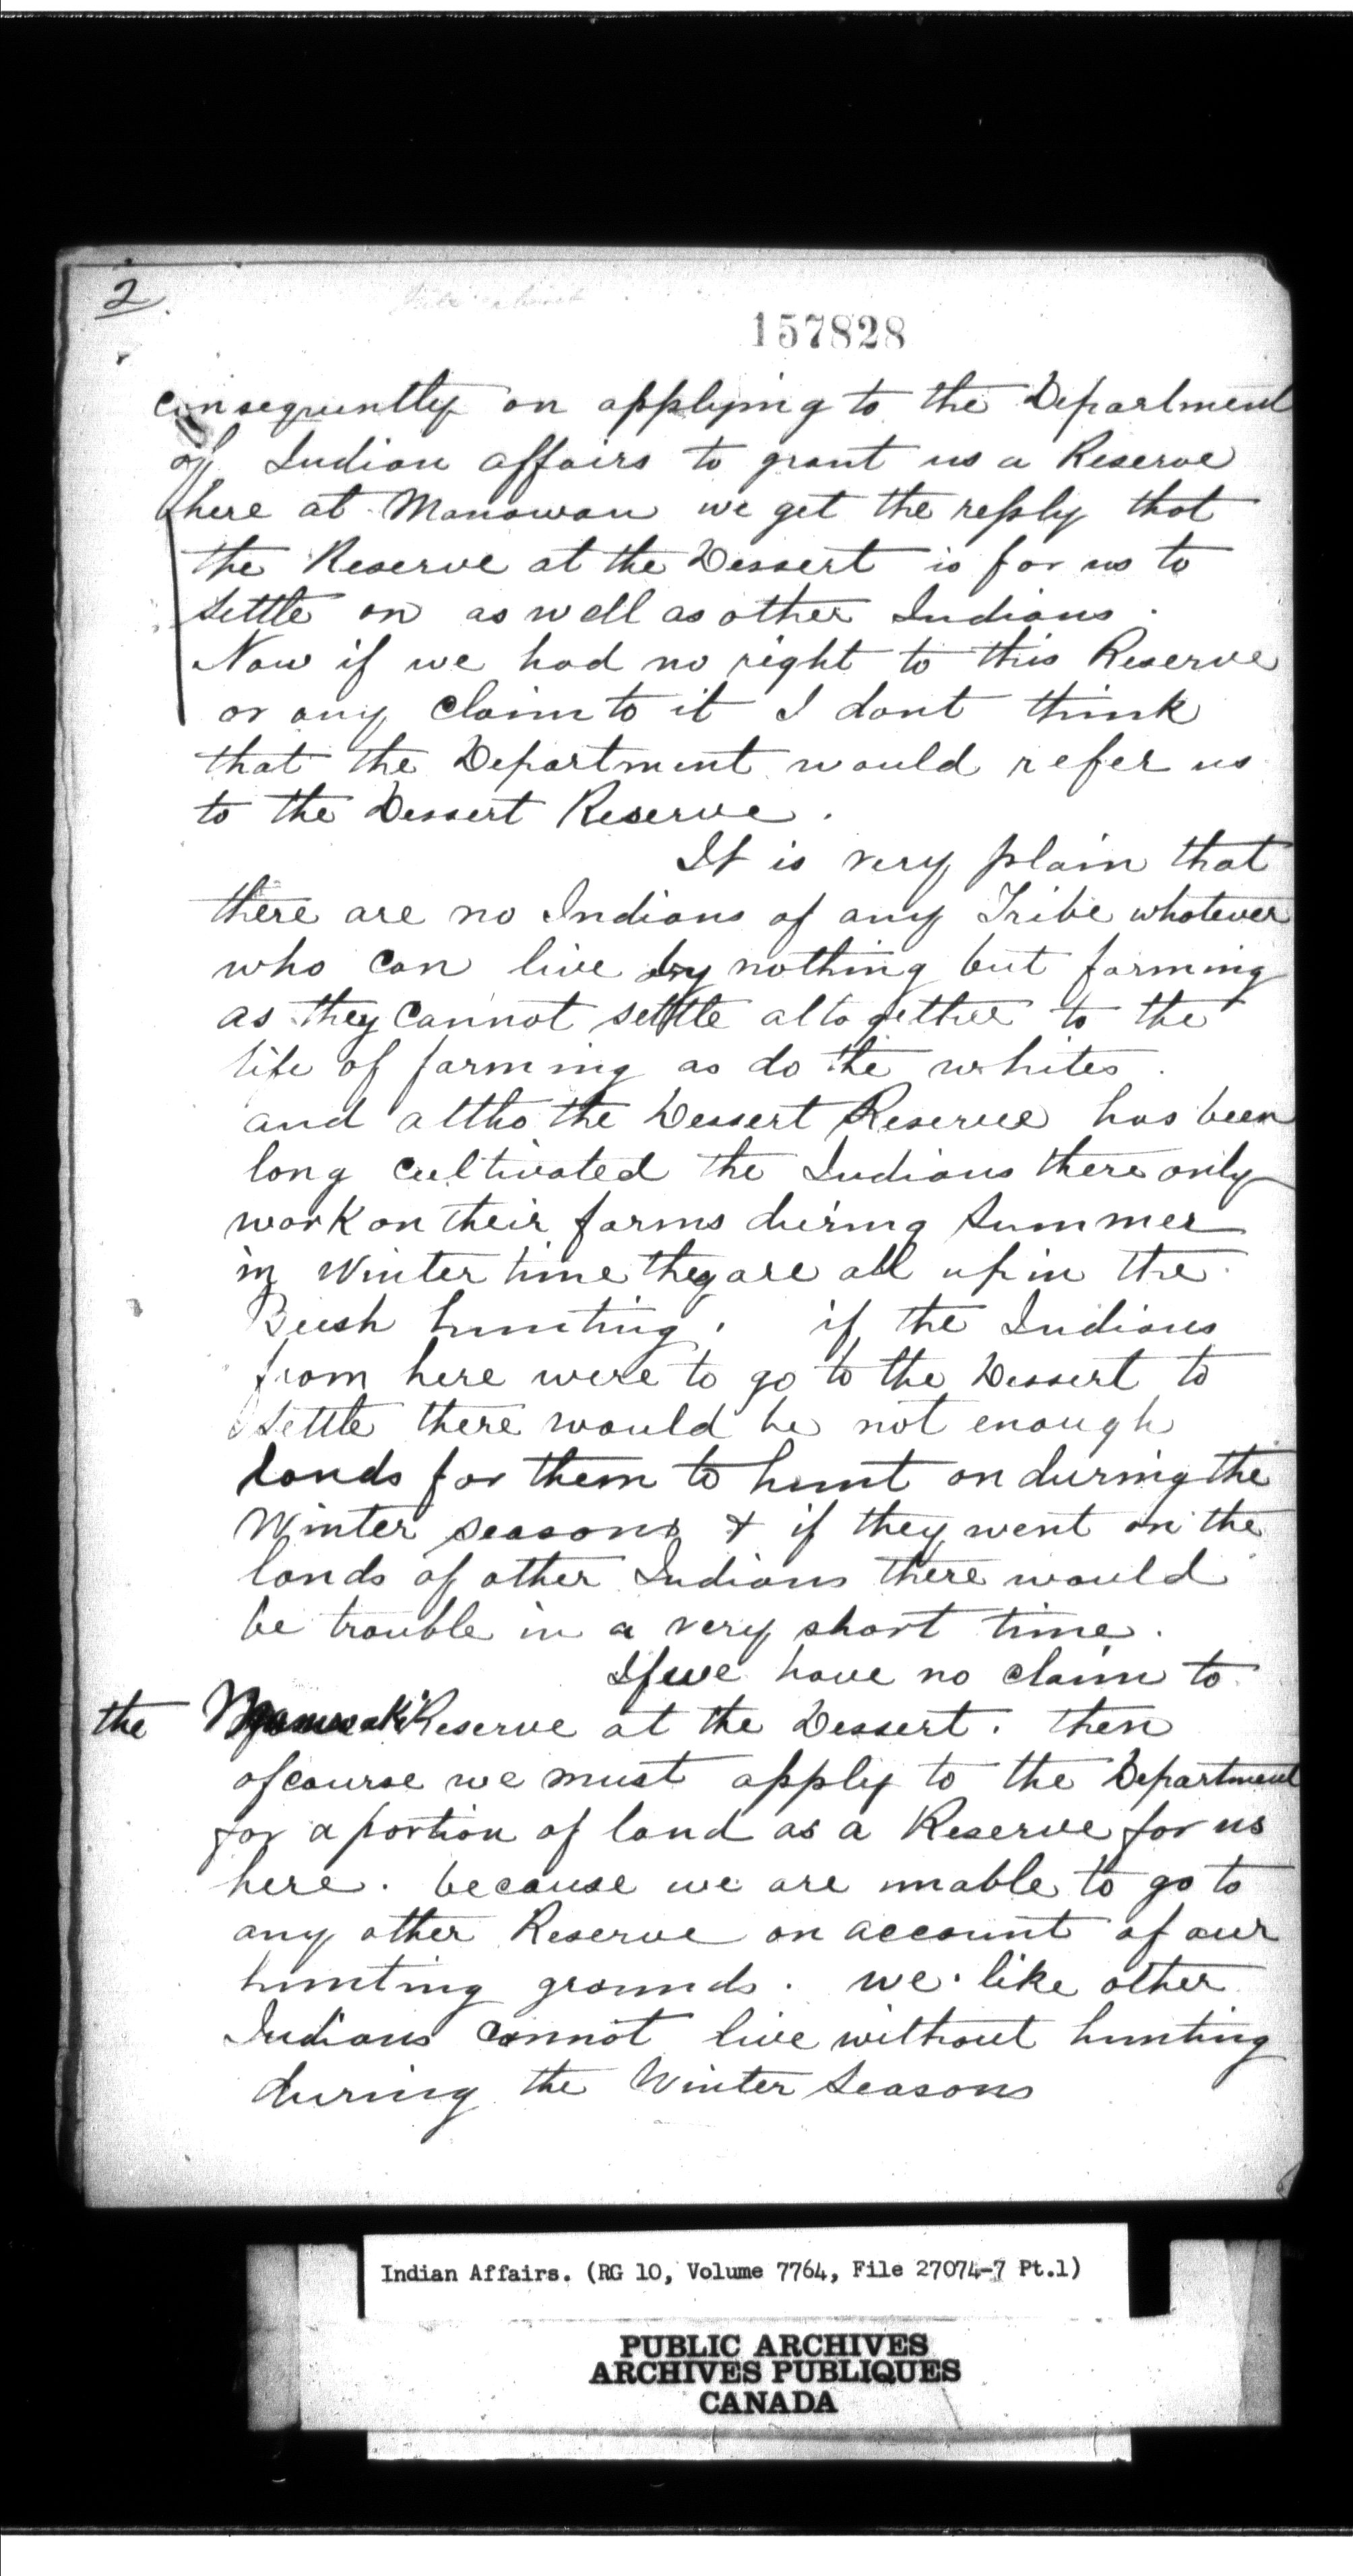 2.
157828
consequently on applying to the Department
of Indian affairs to grant us a Reserve
here at Manowan we get the reply that
the Reserve at the Dessert is for us to
settle on as well as other Indians.
Now if we had no right to this Reserve
or any claim to it I dont think
that the Department would refer us
to the Dessert Reserve.
It is very plain that
there are no Indians of any Tribe whatever
who can live by nothing but farming
as they cannot settle altogether to the
life of farming as do the whites.
and altho the Dessert Reserve has been
long cultivated the Indians there only
work on their farms during Summer
in Winter time they are all up in the
Bush hunting. if the Indians
from here were to go to the Dessert to
Settle there would be not enough
lands for them to hunt on during the
Winter seasons & if they went on the
lands of other Indians there would
be trouble in a very short time.
If we have no claim to
the Reserve at the Dessert. then
ofcourse we must apply to the Department
for a portion of land as a Reserve for us
here. because we are unable to go to
any other Reserve on account of our
hunting grounds. we like other
Indians cannot live without hunting
during the Winter Seasons
Indian Affairs. (RG 10, Volume 7764, File 27074-7 Pt.1)
PUBLIC ARCHIVES
ARCHIVES PUBLIQUES
CANADA